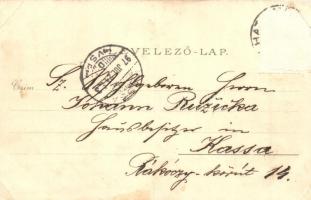 VELEZŐ-LAP.
Czím
Sz. Wohlgeboren Herrn
Johann Ružicka
Hausbesitzer in
Kassa
Rákóczy-körút 14.